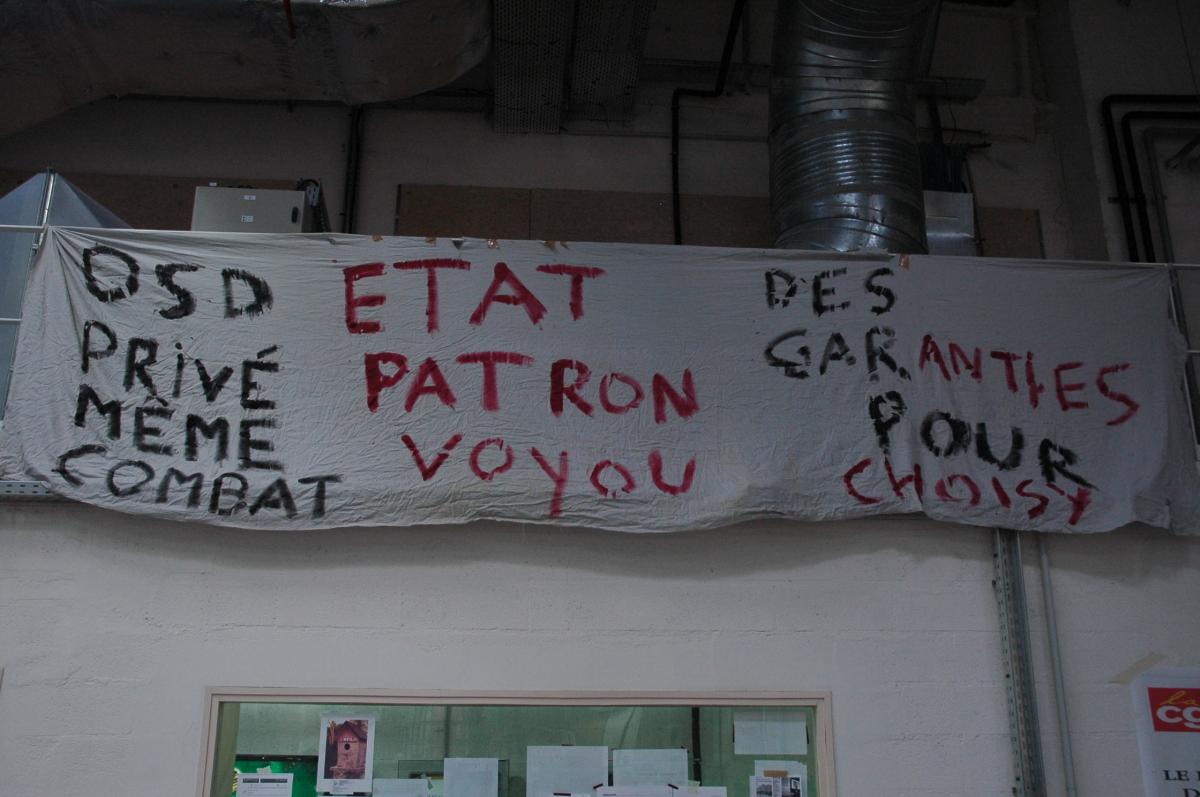 DSD
PRiVÉ
MÊME
COMBAT
ETAT
PATRON
VOYOU
DES
GARANTIES
POUR
CHOISY
la
cg
LE